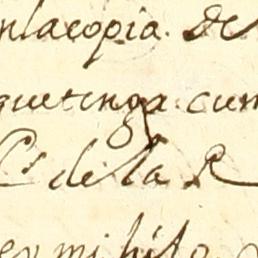 enlacopia. de
que tenga cum
Cs de la R
en mi hijo